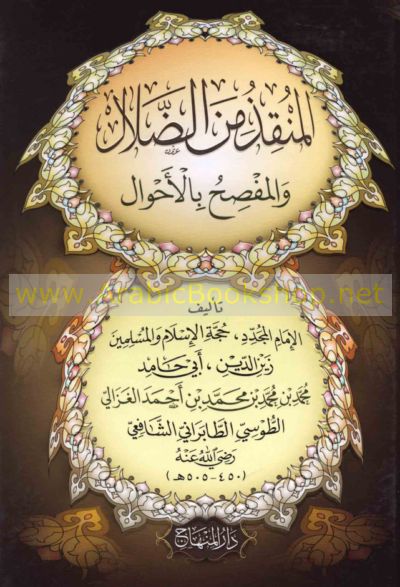 المُنقِذُ مِنَ الضَّلَالِ
وَالمُفْصِحُ بِالْأَحْوَالِ
www.ArabicBookshop.net
تأليف
الإمَامِ المُجَدِّدِ، حُجَّةِ الإِسْلَامِ وَالمُسْلِمِينَ
زَيْنِ الدِّينِ، أَبِي حَامِد
مُحَمَّدِ بْنِ مُحَمَّدِ بْنِ مُحَمَّدِ بْنِ أَحْمَدَ الغَزَالِيِّ
الطُّوسِيِّ الطَّابَرَانِيِّ الشَّافِعِيِّ
رَضِيَ اللهُ عَنْهُ
(٤٥٠-٥٠٥هـ)
دَارُ المِنْهَاجِ